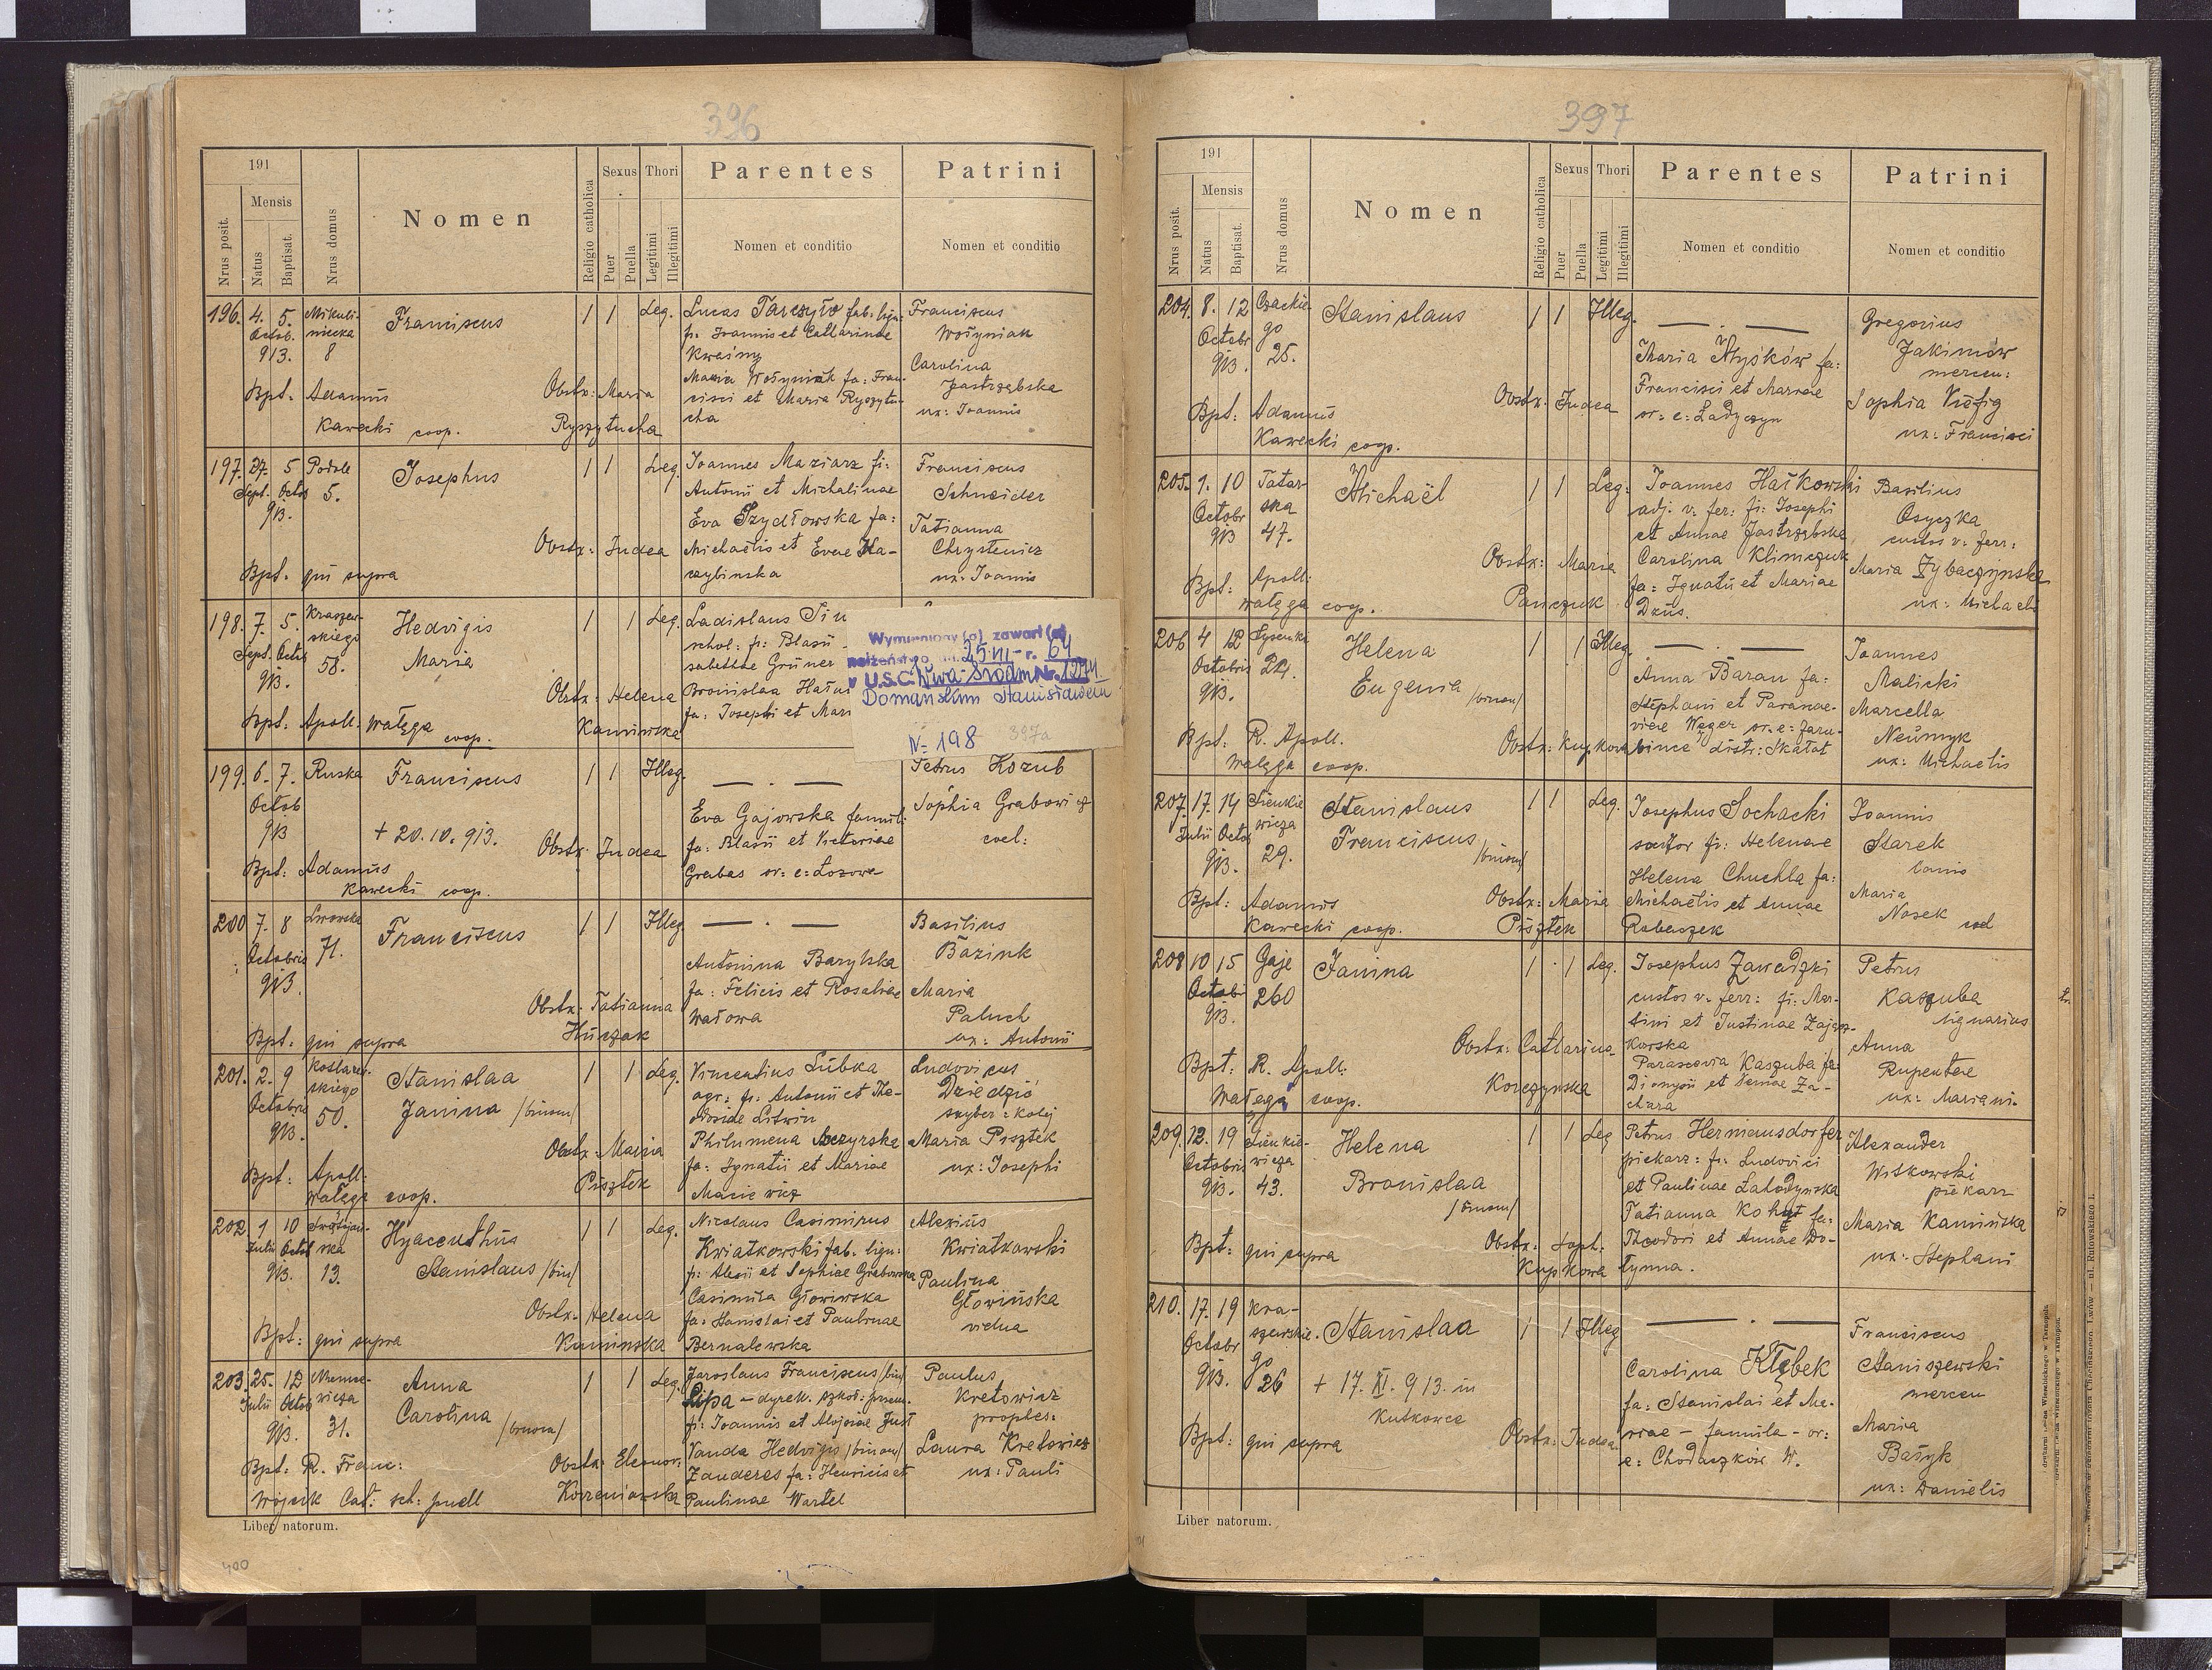 396
191
Nrus posit.
Mensis
Natus
Baptisat.
Nrus domus
Nomen
Religio catholica
Sexus
Puer
Puella
Thori
Legitimi
Illegitimi
Parentes
Nomen et conditio
Patrini
Nomen et conditio
196. 4. 5. Mikuli-
Octob. niecka
913. 8
Franciscus
1 1 Leg.
Lucas Tarczyło fab. lign:
fi. Joannis et Catharinae
Kwaśny
Maria Wożyniak fa: Fran-
cisci et Maria Ryszytu-
cha
Franciscus
Wożyniak
Carolina
Jastrzębska
ux: Joannis
Bpt. Adamus
Kawecki coop.
Obstx: Maria
Ryszytucha
197. 27. 5 Podole
Sept. Octob 5.
913.
Josephus
1 1 Leg.
Joannes Maziarz fi:
Antonii et Michalinae
Eva Szydłowska fa:
Michaelis et Evae
czybinska
Franciscus
Schneider
Tatianna
Chrystenicz
ux: Joannis
Obstx: Judea
Bpt. qui supra
198. 7. 5. Kraszew-
Sept. Octob skiego
913. 58.
Hedvigis
Maria
1 1 Leg.
Ladislaus
schol: fi: Blasii
sabethae Grüner
Bronislaa
fa: Josephi et Mari
Obstx: Helena
Kaminska
Bpt. Apoll. Wałęga
coop.
Wymieniony (a) zawarł (a)
małżeństwo dn. 25.VII r. 64
w U.S.C. W-wa-Śródm Nr. 1274
Domańskim Stanisławem
N: 198 397a
199. 6. 7. Ruska
Octob
913
Franciscus
+ 20.10.913.
1 1 Illeg.
— . —
Eva Gajowska famil:
fa: Blasii et Victoriae
Grabas or: e: Łozowa
Petrus Kozub
Sophia Grabowicz
coel:
Obstx: Judea
Bpt: Adamus
Kawecki coop.
200 7. 8 Lwowska
Octobris 71.
913.
Franciscus
1 1 Illeg
— . —
Antonina Barylska
fa: Felicis et Rosaliae
Watowa
Basilius
Bazink
Maria
Paluch
ux: Antonii
Obstx: Tatianna
Huczak
Bpt: qui supra
201. 2. 9
Octobris skiego
913. 50.
Stanislaa
Janina /binom/
1 1 Leg.
Vincentius Lubka
agr: fi. Antonii et The-
odosiae Litwin
Philumena
fa: Ignatii et Mariae
Maciewicz
Ludovicus
Dziedzic
szyber: kolej
Maria Pisztek
ux: Josephi
Obstx: Maria
Pisztek
Bpt: Apoll:
Wałęga coop.
202. 1 10
Julii Octob ska
913. 13.
Hyacenthus
Stanislaus /bin/
1 1 Leg.
Nicolaus Casimirus
Kwiatkowski fab. lign:
fi: Alexii et Sophiae Grabowska
Casimira Głowinska
fa: Stanislai et Paulinae
Bernalewska
Alexius
Kwiatkowski
Paulina
Głowińska
vidua
Obstx: Helena
Kaminska
Bpt: qui supra
203. 25. 12
Julii Octob wicza
913. 31.
Anna
Carolina
/binom/
1 1 Leg.
Jaroslaus Franciscus /bin/
Lipa - dyrek. szkoł: przem.
fi: Joannis et Alojsiae Just
Vanda Hedvigis /binom/
Zanderes fa: Henricis et
Paulinae Wartel
Paulus
Kretowicz
proples:
Laura Kretowicz
ux: Pauli
Bpt: R. Franc:
Wójcik Cat: sch: puell
Obstx: Eleonor.
Korzeniowska
Liber natorum.
400
397
191
Nrus posit.
Mensis
Natus
Baptisat.
Nrus domus
Nomen
Religio catholica
Sexus
Puer
Puella
Thori
Legitimi
Illegitimi
Parentes
Nomen et conditio
Patrini
Nomen et conditio
204. 8. 12 Czackie-
Octobr go
913. 25.
Stanislaus
1 1 Illeg.
— . —
Maria Myśków fa:
Francisci et Mariae
or: e: Ladyczyn
Gregorius
Jakimów
mercen:
Sophia
ux: Francisci
Obstx: Judea
Bpt: Adamus
Kawecki coop.
205. 1. 10 Tatar-
Octobr ska
913 47.
Michaël
1 1 Leg.
Joannes Haśkowski
adj. v. fer: fi: Josephi
et Annae Jastrzębska
Carolina Klimczuk
fa: Ignatii et Mariae
Dzùs.
Basilius
Osyczka
custos v: ferr:
Maria Zybaczynska
ux: Michaelis
Obstx: Maria
Panczuk
Bpt: Apoll:
Wałęga coop.
206 4 12 Łysenki
Octobris 24.
913.
Helena
Eugenia /binom/
1 1 Illeg.
— . —
Anna Baran fa:
Stephani et Parasce-
viae Wager or: e: Zaru-
bince distr: Skałat
Joannes
Malicki
Marcella
Neumyk
ux: Michaelis
Obstx: Kupkowa
Bpt: R. Apoll.
Wałęga coop.
207. 17. 14 Sienkie
Julii Octob wicza
913. 29.
Stanislaus
Franciscus
/binom/
1 1 Leg.
Josephus Sochacki
sartor fi: Helenae
Helena Chuchla fa:
Michaëlis et Annae
Robaczek
Joannis
Starek
lanio
Maria
Nosek coel
Obstx: Maria
Pisztek
Bpt: Adamus
Kawecki coop.
208 10 15 Gaje
Octobr 260
913.
Janina
1 1 Leg.
Josephus Zawadzki
custos v. ferr: fi: Mar-
tini et Justinae Zającz-
kowska
Parascevia Kaszuba fa:
Dionysii et Annae Za-
chara
Petrus
Kaszuba
lignarius
Anna
Rupentere
ux: Mariani.
Obstx: Catharina
Korczynska
Bpt: R. Apoll:
Wałęga coop.
209. 12. 19 Sienkie-
Octobris wicza
913. 43.
Helena
Bronislaa
/binom/
1 1 Leg
Petrus Hermansdorfer
piekarz: fi: Ludovici
et Paulinae Lahodynska
Tatianna Kohut fa:
Theodori et Annae Do-
tynna.
Alexander
Witkowski
piekarz
Maria Kamińska
ux: Stephani
Obstx: Soph:
Kupkowa
Bpt: qui supra
210. 17. 19 Kra-
Octobr szewskie-
913. go
26
Stanislaa
+ 17. XI. 913. in
Kutkowce
1 1 Illeg
— . —
Carolina Kłębek
fa: Stanislai et Ma-
riae - famula - or:
e: Chodaczków W.
Franciscus
Staniszewski
mercen
Maria
Basyk
ux: Danielis
Obstx: Judea
Bpt: qui supra
Liber natorum.